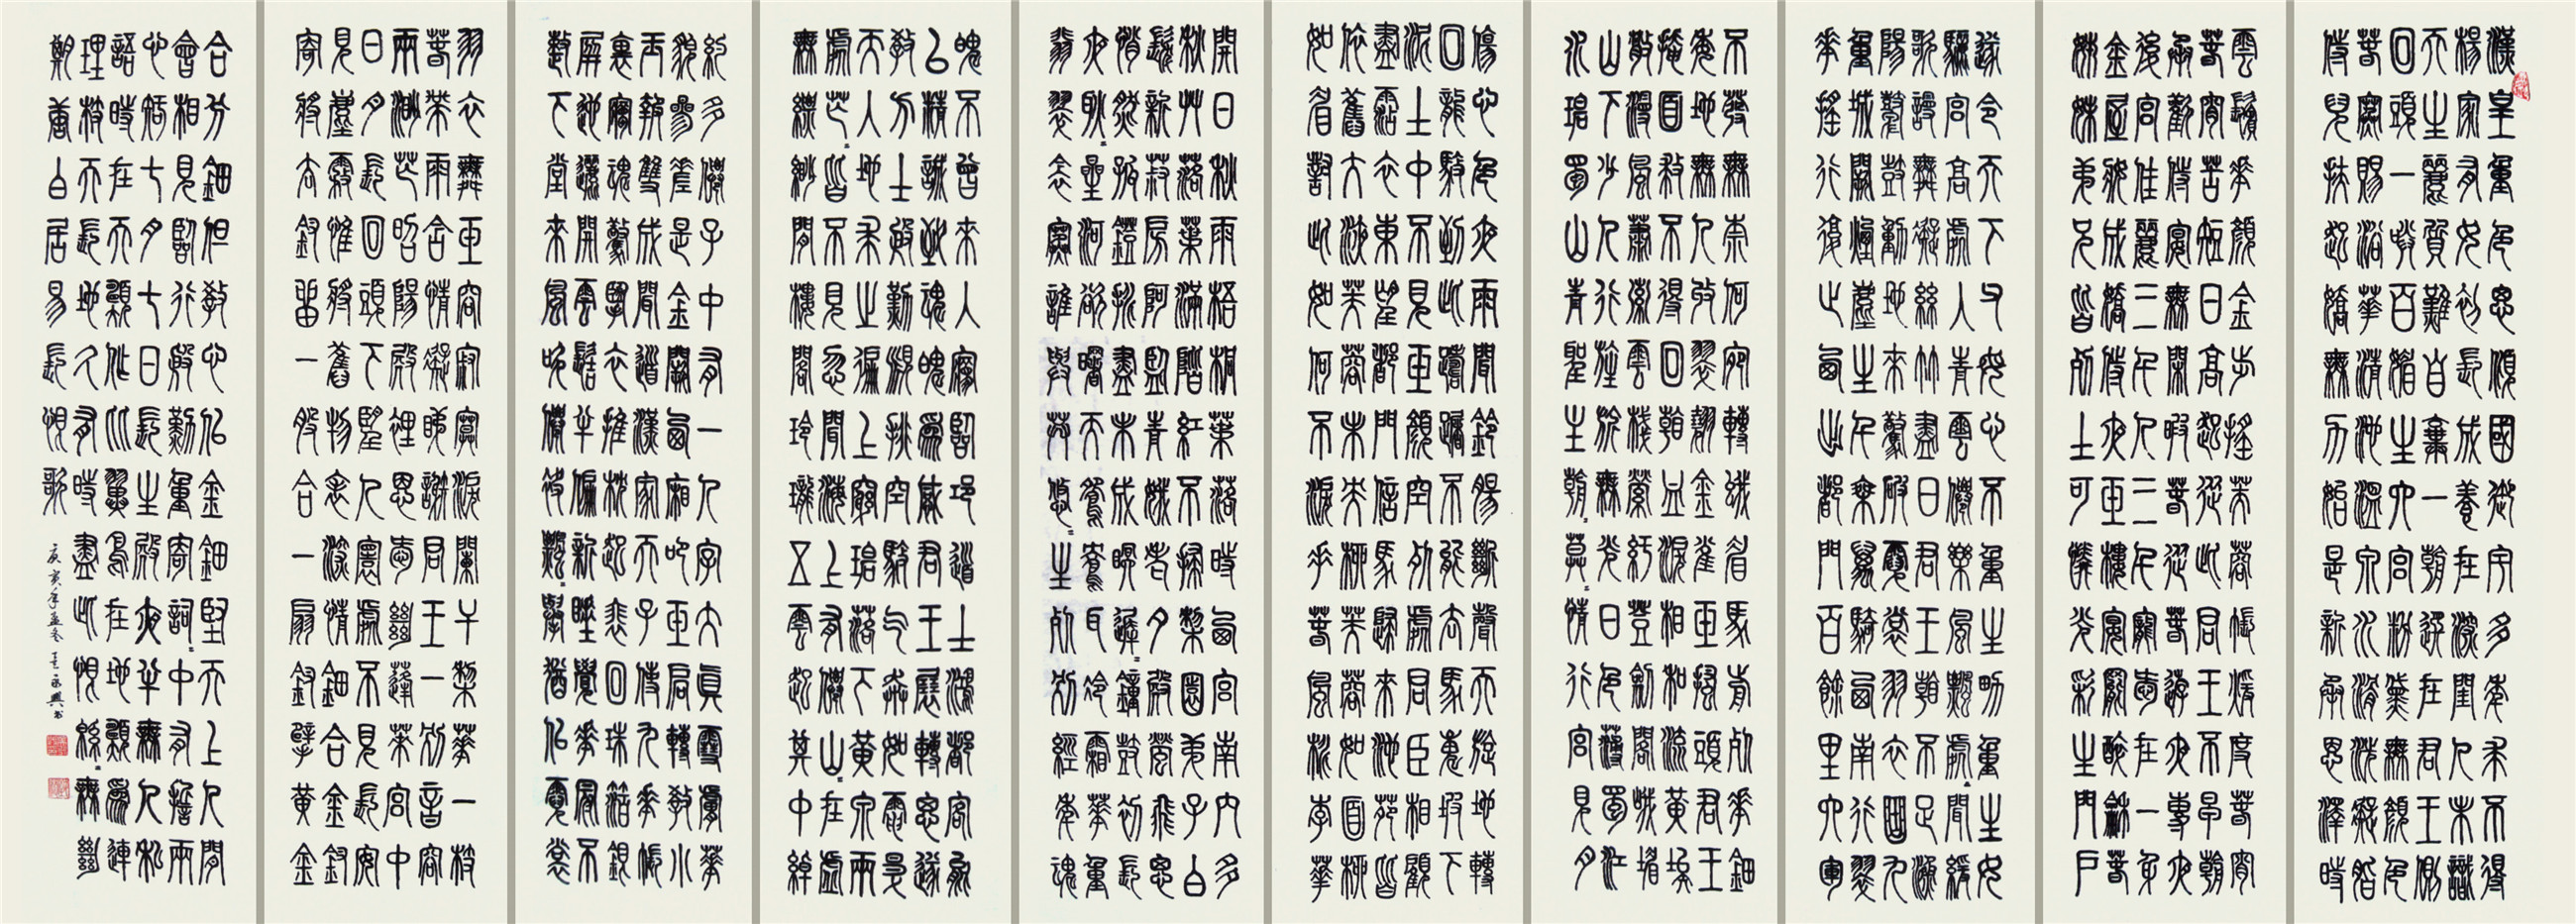 漢皇重色思傾國御宇多年求不得
楊家有女初長成養在深閨人未識
天生麗質難自棄一朝選在君王側
回頭一笑百媚生六宮粉黛無顏色
春寒賜浴華清池溫泉水滑洗凝脂
侍兒扶起嬌無力始是新承恩澤時
雲鬢花顏金步搖芙蓉帳暖度春宵
春宵苦短日高起從此君王不早朝
承歡侍宴無閒暇春從春遊夜專夜
後宮佳麗三千人三千寵愛在一身
金屋妝成嬌侍夜玉樓宴罷醉和春
姊妹弟兄皆列土可憐光彩生門戶
遂令天下父母心不重生男重生女
驪宮高處入青雲仙樂風飄處=聞緩
歌謾舞凝絲竹盡日君王看不足漁
陽鼙鼓動地來驚破霓裳羽衣曲九
重城闕煙塵生千乘萬騎西南行翠
華搖=行復止西出都門百餘里六軍
不發無奈何宛轉蛾眉馬前死花鈿
委地無人收翠翹金雀玉搔頭君王
掩面救不得回看血淚相和流黃埃
散漫風蕭索雲棧縈紆登劍閣峨嵋
山下少人行旌旗無光日色薄蜀江
水碧蜀山青聖主朝=暮=情行宮見月
傷心色夜雨聞鈴腸斷聲天旋地轉
回龍馭到此躊躇不能去馬嵬坡下
泥土中不見玉顏空死處君臣相顧
盡霑衣東望都門信馬歸來池苑皆
依舊太液芙蓉未央柳芙蓉如面柳
如眉對此如何不淚垂春風桃李花
開日秋雨梧桐葉落時西宮南內多
秋草落葉滿階紅不掃梨園弟子白
髮新椒房阿監青娥老夕殿螢飛思
悄然孤燈挑盡未成眠遲=鐘鼓初長
夜耿=星河欲曙天鴛鴦瓦冷霜華重
翡翠衾寒誰與共悠=生死別經年魂
魄不曾來入夢臨邛道士鴻都客能
以精誠致魂魄為感君王展轉思遂
教方士殷勤覓排空馭氣奔如電昇
天入地求之遍上窮碧落下黃泉兩
處茫=皆不見忽聞海上有仙山=在虛
無縹緲間樓閣玲瓏五雲起其中綽
約多仙子中有一人字太真雪膚花
貌參差是金闕西廂叩玉扃轉教小
玉報雙成聞道漢家天子使九華帳
裏夢魂驚攬衣推枕起徘徊珠箔銀
屏迤邐開雲鬢半偏新睡覺花冠不
整下堂來風吹仙袂飄=舉猶似霓裳
羽衣舞玉容寂寞淚闌干梨花一枝
春帶雨含情凝睇謝君王一別音容
兩渺茫昭陽殿裡恩愛絕蓬萊宮中
日月長回頭下望人寰處不見長安
見塵霧惟將舊物表深情鈿合金釵
寄將去釵留一股合一扇釵擘黃金
合分鈿但教心似金鈿堅天上人間
會相見臨別殷勤重寄詞=中有誓兩
心知七月七日長生殿夜半無人私
語時在天願作比翼鳥在地願為連
理枝天長地久有時盡此恨綿=無絕
期 唐白居易長恨歌 庚寅年孟冬 王永興书